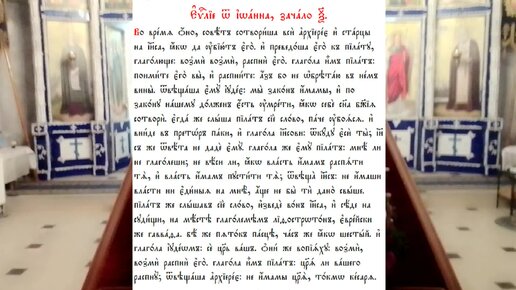 Еѵⷢ҇лїе ѿ іѡа́нна, зача́ло ѯ҃.
Во вре́мѧ ѻ҆́но, совѣ́тъ сотвори́ша всѝ а҆рхїере́є и҆ ста́рцы
на і҆и҃са, ꙗ҆́кѡ да ᲂу҆бїю́тъ є҆го̀. и҆ преведо́ша є҆го̀ къ пїла́тꙋ,
глаго́люще: возмѝ возмѝ, распнѝ є҆го̀. глаго́ла и҆̀мъ пїла́тъ:
пои́мите є҆го̀ вы̀, и҆ распни́те: а҆́зъ бо не ѡ҆брѣта́ю въ не́мъ
вины̀. ѿвѣща́ша є҆мꙋ̀ і҆ꙋде́є: мы̀ зако́нъ и҆́мамы, и҆ по
зако́нꙋ на́шемꙋ до́лженъ є҆́сть ᲂу҆мре́ти, ꙗ҆́кѡ себѐ сн҃а бж҃їѧ
сотворѝ. є҆гда́ же слы́ша пїла́тъ сїѐ сло́во, па́че ᲂу҆боѧ́сѧ. и҆
вни́де въ прето́ръ па́ки, и҆ глаго́ла і҆и҃сови: ѿкꙋ́дꙋ є҆сѝ ты̀; і҆и҃
съ же ѿвѣ́та не дадѐ є҆мꙋ̀. глаго́ла же є҆мꙋ̀ пїла́тъ: мнѣ́ ли
не глаго́леши; не вѣ́си ли, ꙗ҆́кѡ вла́сть и҆́мамъ распѧ́ти
тѧ̀, и҆ вла́сть и҆́мамъ пꙋсти́ти тѧ̀; ѿвѣща̀ і҆и҃съ: не и҆́маши
вла́сти ни є҆ди́ныѧ на мнѣ̀, а҆́ще не бы̀ тѝ дано̀ свы́ше.
пїла́тъ же слы́шавъ сїѐ сло́во, и҆зведѐ во́нъ і҆и҃са, и҆ сѣ́де на
сꙋди́щи, на мѣ́стѣ глаго́лемѣмъ лїѳостро́тонъ, є҆вре́йски
же гавваѳа. бѣ́ же пѧто́къ па́сцѣ, ча́съ же ꙗ҆́кѡ шесты́й. и҆
глаго́ла і҆ꙋде́ѡмъ: сѐ цр҃ь ва́шъ. ѻ҆ни́ же вопїѧ́хꙋ: возмѝ,
возмѝ распнѝ є҆го̀. глаго́ла и҆̀мъ пїла́тъ: цр҃ѧ́ ли ва́шего
распнꙋ̀; ѿвѣща́ша а҆рхїере́є: не и҆́мамы цр҃ѧ̀, то́кмѡ ке́сарѧ.